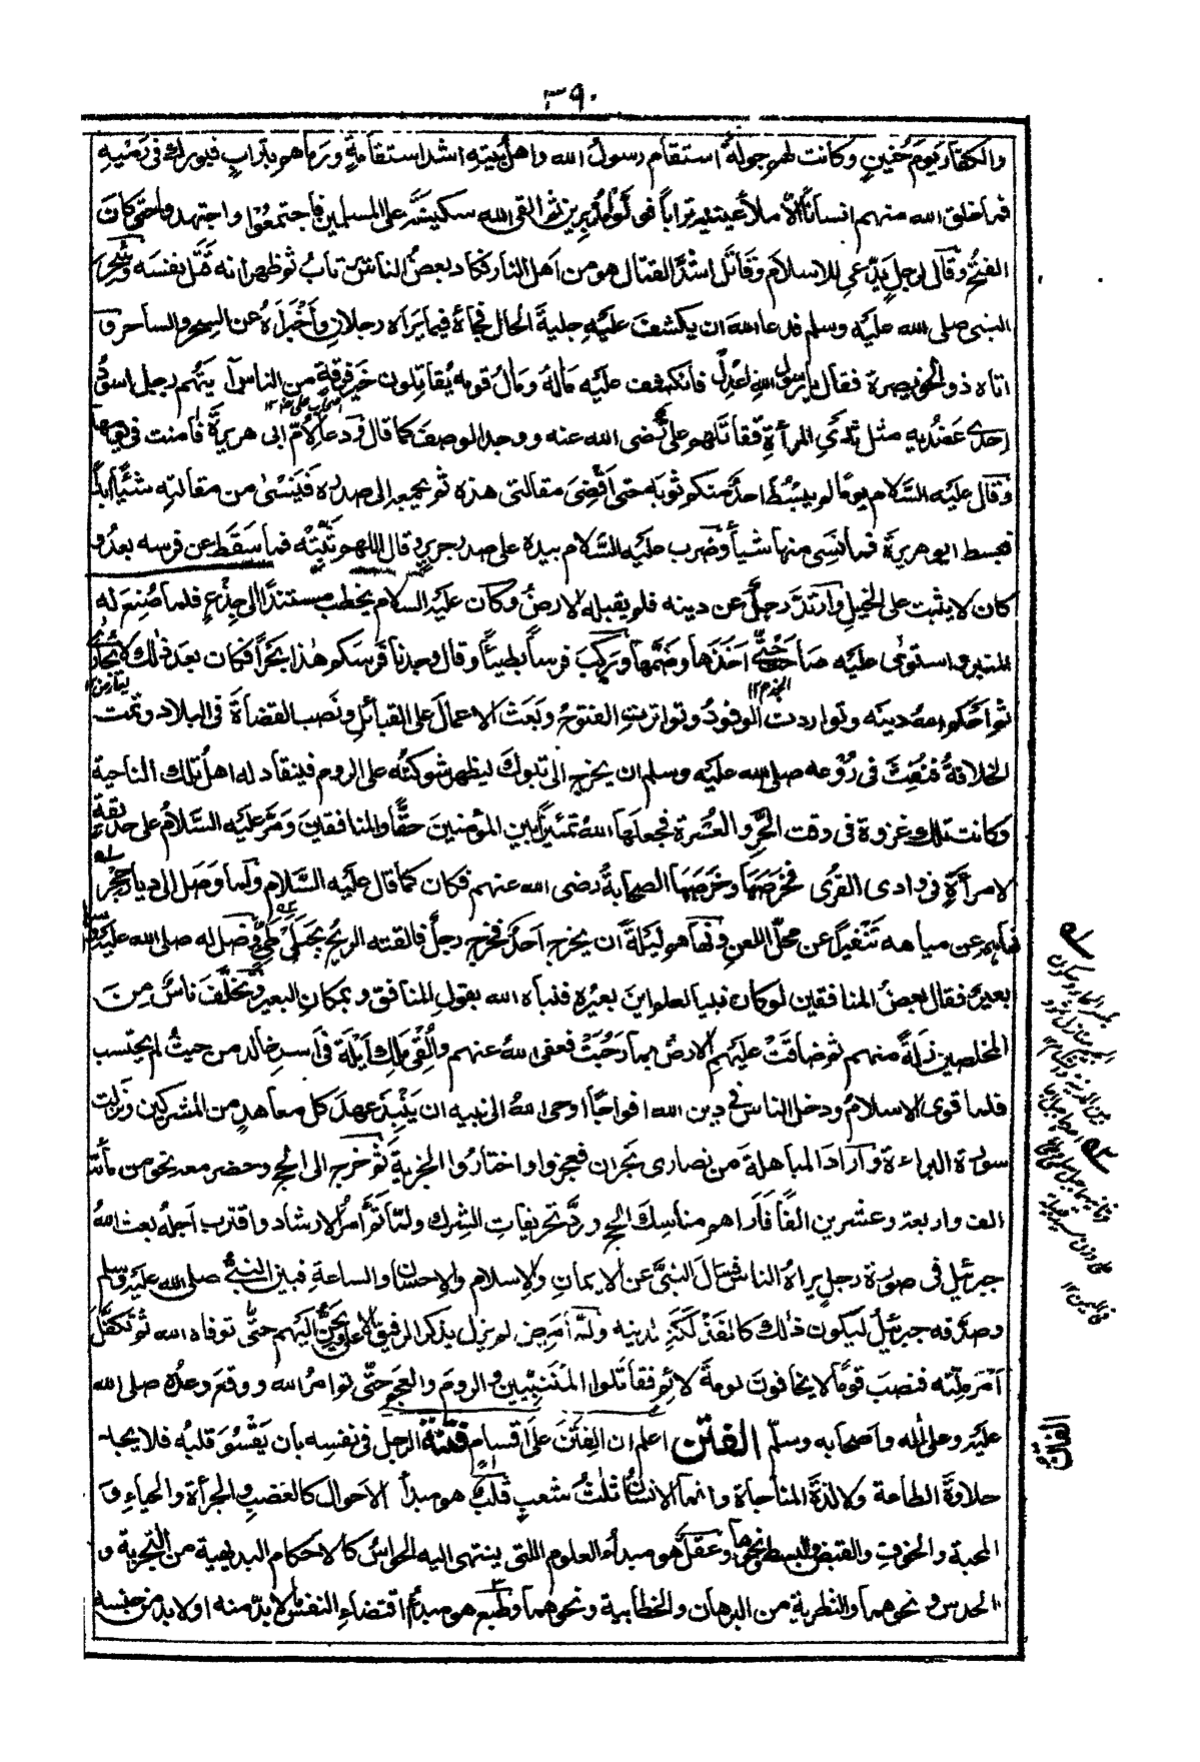 ٣٩٠
والكفار يوم حنين وكانت لهم جولة استقام رسول الله واهل بيته اشد استقامة ورماهم بتراب فبورك فى رميه
فما خلق الله منهم انسانا الا ملأ عينيه ترابا فولوا مدبرين ثم القى الله سكينته على المسلمين فاجتمعوا واجتهدوا حتى كان
الفتح وقال لرجل يدعى الاسلام وقاتل اشد القتال هو من اهل النار فكاد بعض الناس يرتاب ثم ظهر انه قتل نفسه وسحر
النبى صلى الله عليه وسلم فدعا الله ان يكشف عليه جلية الحال فجاءه فيما يراه رجلان واخبراه عن السحر والساحر و
اتاه ذو الخويصرة فقال يا رسول الله اعدل فانكشف عليه مآله ومآل قومه يقاتلون خير فرقة من الناس آيتهم رجل اسود
احدى عضديه مثل ثدى المرأة فقاتلهم على رضى الله عنه ووجد الوصف كما قال ودعا لام ابى هريرة فآمنت فى يومها
وقال عليه السلام يوما لم يبسط احد منكم ثوبه حتى اقضى مقالتى هذه ثم يجمعه الى صدره فينسى من مقالته شيئا ابدا
فبسط ابو هريرة فما نسى منها شيأ وضرب عليه السلام بيده على صدر جرير وقال اللهم ثبته فما سقط عن فرسه بعد و
كان لا يثبت على الخيل وارتد رجل عن دينه فلم يقبله الارض وكان عليه السلام يخطب مستندا الى جذع فلما صنع له
المنبر واستوى عليه صاح حتى اخذها وضمها وركب فرسا بطيئا وقال وجدنا فرسكم هذا بحرا فكان بعد ذلك لا يجارى
ثم احكم الله دينه وتواردت الوفود وتواترت الفتوح وبعث الاعمال على القبائل ونصب القضاة فى البلاد وتمت
الخلافة فنفث فى روعه صلى الله عليه وسلم ان يخرج الى تبوك ليظهر شوكته على الروم فينقاد له اهل تلك الناحية
وكانت تلك غزوة فى وقت الحر والعسرة فجعلها الله تمييزا بين المؤمنين حقا والمنافقين ومر عليه السلام على حديقة
لامرأة فى وادى القرى فخرصها وخرصها الصحابة رضى الله عنهم فكان كما قال عليه السلام ولما وصل الى ديار حجر
نهاهم عن مياهه تنفيرا عن محل اللعن ونهاهم ليلة ان يخرج احد فخرج رجل فالقته الريح بجبلى طى وضل له صلى الله عليه وسلم
بعير فقال بعض المنافقين لو كان نبيا لعلم اين بعيره فنبأه الله بقول المنافق وبمكان البعير وتخلف ناس من
المخلصين زلة منهم ثم ضاقت عليهم الارض بما رحبت فعفى الله عنهم والقى ملك ايلة فى اسر خالد من حيث لم يحتسب
فلما قوى الاسلام ودخل الناس فى دين الله افواجا اوحى الله الى نبيه ان ينبذ عهد كل معاهد من المشركين ونزلت
سورة البراءة واراد المباهلة من نصارى نجران فعجزوا واختاروا الجزية ثم خرج الى الحج وحضر معه نحو من مأئة
الف واربعة وعشرين الفا فاراهم مناسك الحج ورد تحريفات الشرك ولما تم امر الارشاد واقترب اجله بعث الله
جبرئيل فى صورة رجل يراه الناس فسأل النبى عن الايمان والاسلام والاحسان والساعة فبين النبى صلى الله عليه وسلم
وصدقه جبرئيل ليكون ذلك كالفذلكة لدينه ولما مرض لم يزل يذكر الرفيق الاعلى ويحن اليهم حتى توفاه الله ثم تكفل
امر ملته فنصب قوما لا يخافون لومة لائم فقاتلوا المتنبيين والروم والعجم حتى تم امر الله ووقع وعده صلى الله
عليه وعلى آله واصحابه وسلم الفتن اعلم ان الفتن على اقسام فتنة الرجل فى نفسه بان يقسو قلبه فلا يجد
حلاوة الطاعة ولا لذة المناجاة وانما الانسان ثلث شعب قلب هو مبدأ الاحوال كالغضب والجرأة والحياء و
المحبة والخوف والقبض والبسط ونحوها وعقل هو مبدء العلوم التى ينتهى اليه الحواس كالاحكام البديهية من التجربة و
الحدس ونحوهما والنظرية من البرهان والخطابية ونحوهما وطبع هو مبدء اقتضاء النفس ما لا بد منه او لا بد من جنسه
الفتن